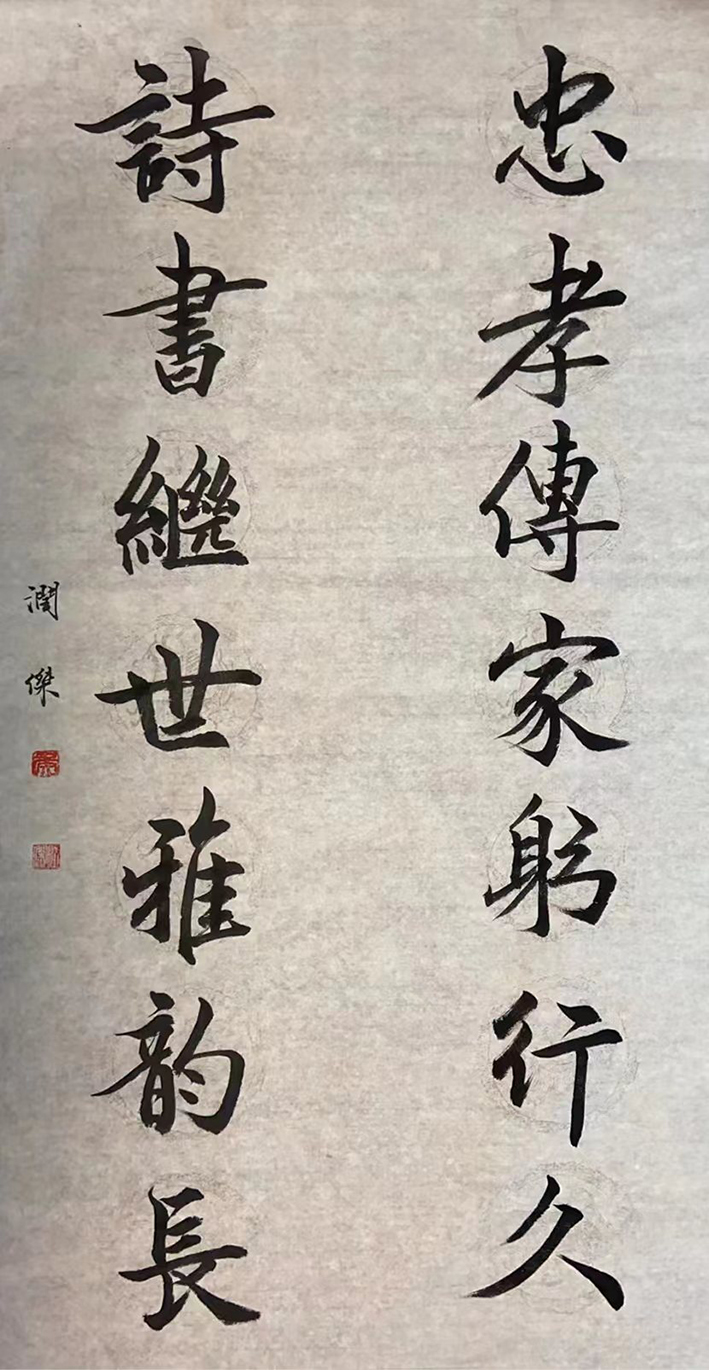 忠孝傳家躬行久
詩書繼世雅韵長
潤傑